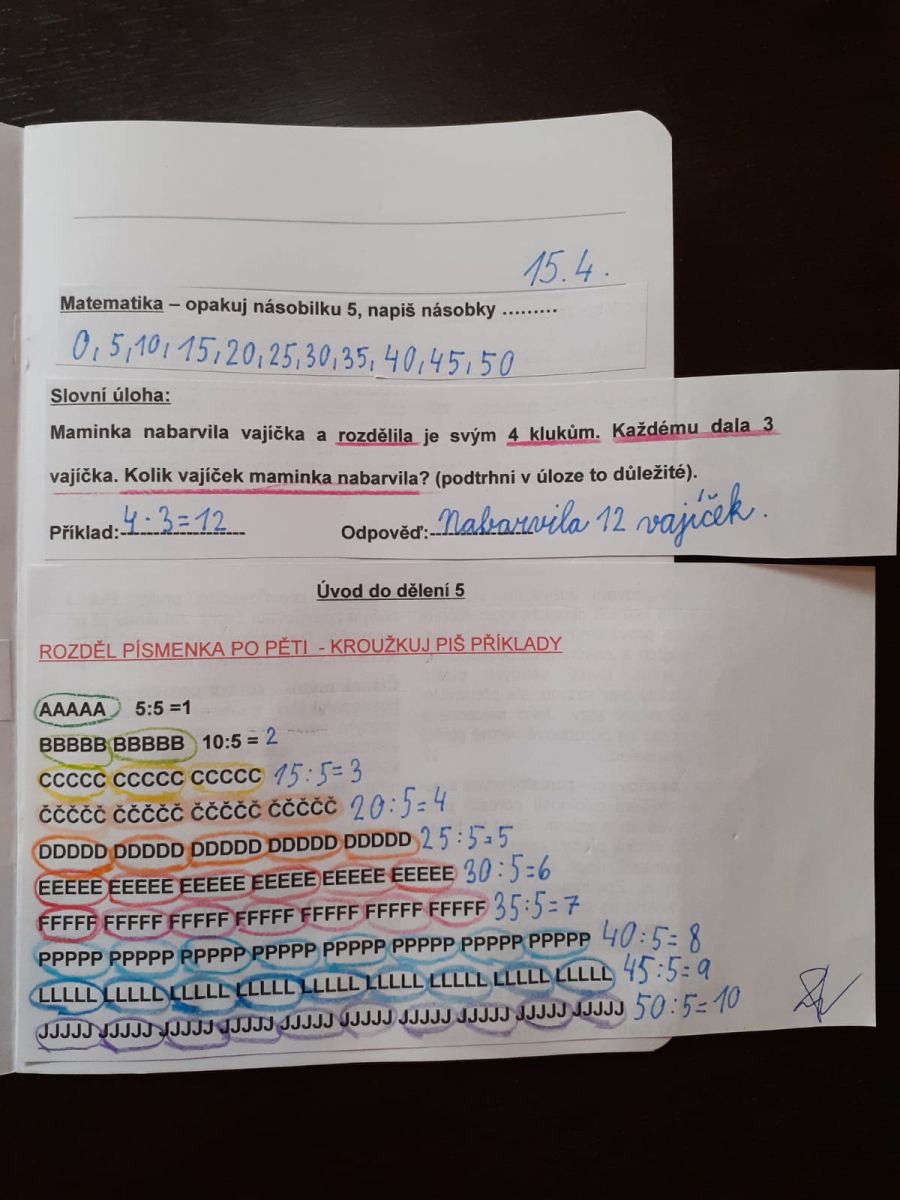 15.4.
Matematika – opakuj násobilku 5, napiš násobky .........
0, 5, 10, 15, 20, 25, 30, 35, 40, 45, 50
Slovní úloha:
Maminka nabarvila vajíčka a rozdělila je svým 4 klukům. Každému dala 3
vajíčka. Kolik vajíček maminka nabarvila? (podtrhni v úloze to důležité).
Příklad: 4 · 3 = 12 Odpověď: Nabarvila 12 vajíček.
Úvod do dělení 5
ROZDĚL PÍSMENKA PO PĚTI - KROUŽKUJ PIŠ PŘÍKLADY
AAAAA 5:5 =1
BBBBB BBBBB 10:5 = 2
CCCCC CCCCC CCCCC 15:5=3
ČČČČČ ČČČČČ ČČČČČ ČČČČČ 20:5=4
DDDDD DDDDD DDDDD DDDDD DDDDD 25:5=5
EEEEE EEEEE EEEEE EEEEE EEEEE EEEEE 30:5=6
FFFFF FFFFF FFFFF FFFFF FFFFF FFFFF FFFFF 35:5=7
PPPPP PPPPP PPPPP PPPPP PPPPP PPPPP PPPPP PPPPP 40:5=8
LLLLL LLLLL LLLLL LLLLL LLLLL LLLLL LLLLL LLLLL LLLLL 45:5=9
JJJJJ JJJJJ JJJJJ JJJJJ JJJJJ JJJJJ JJJJJ JJJJJ JJJJJ JJJJJ 50:5=10